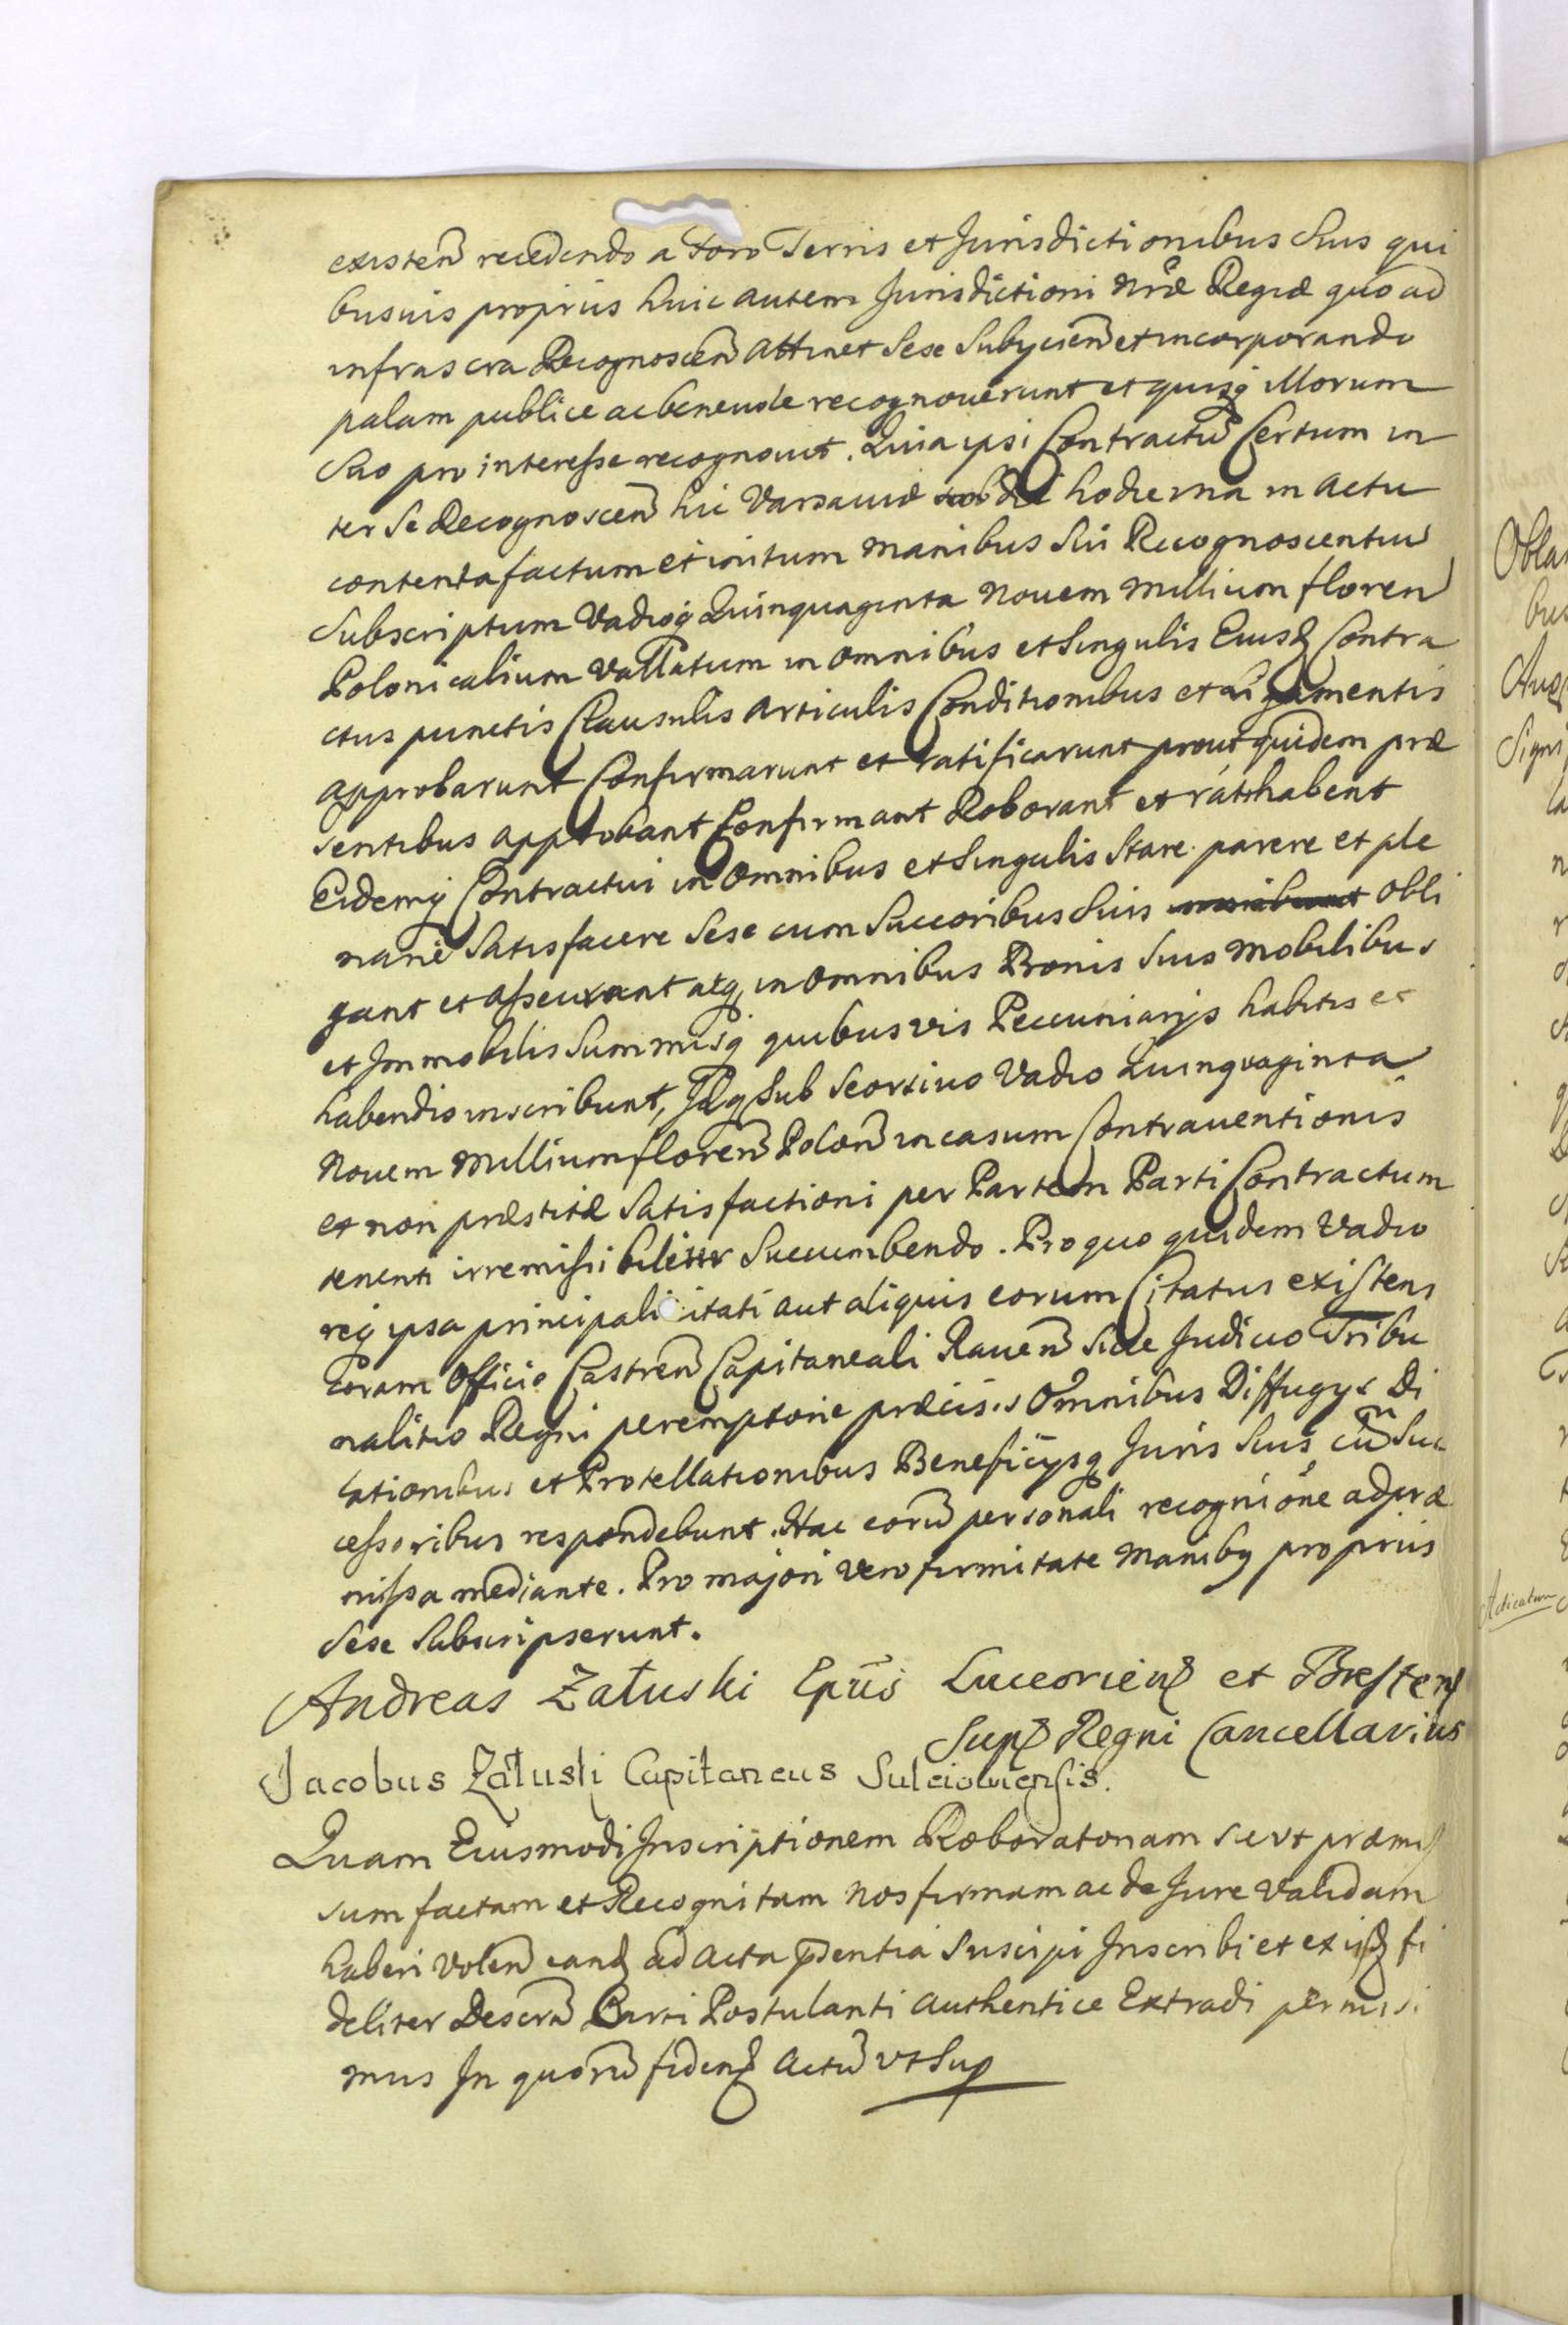 existen̄ recedendo a Foro Terris et Jurisdictionibus Suis qui
busuis proprijs huic autem Jurisdictioni Nrӕ Regiӕ quo ad
infrascra Recognoscen̄ Attinet Sese Subijcien̄ et incorporando
palam publice ac beneuole recognouerunt et quisq̨ illorum
Suo pro interesse recognouit. Quia ipsi Contractū Certum in
ter Se Recognoscen̄ hic Varsauiӕ die hodierna in Actu
contenta factum et initum Manibus Sui Recognoscentiū
Subscriptum Vadioq̨ Quinquaginta Nouem Millium floren̄
Polonicalium Vallatum in Omnibus et Singulis Eiusd Contra
ctus punctis Clausulis Articulis Conditionibus et Ligamentis
Approbarunt Confirmarunt et ratificarunt prout quidem prӕ
sentibus approbant Confirmant Roborant et ratihabent
Eidemq̨ Contractui in Omnibus et Singulis Stare parere et ple
narie Satisfacere Sese cum Succoribus Suis Obli
gant et Assecurant atq̨ in Omnibus Bonis Suis Mobilibus
et Immobilis Summisq̨ quibusvis Pecuniarijs habitis et
habendis inscribunt, Idq̨ Sub Seorsiuo Vadio Quinqvaginta
Nouem Millium floren̄ Polon̄ in casum Contrauentionis
et non prӕstitӕ Satisfactioni per Partem Parti Contractum
tenenti irremissibiliter Succumbendo. Pro quo quidem Vadio
req̨ ipsa principali itati aut aliquis eorum Citatus existens
Coram Officio Castren̄ Capitaneali Rauen̄ Siue Judicio Tribu
nalitio Regni peremptorie prӕcisis Omnibus Diffugijs Di
lationibus et Protellationibus Beneficijsq̨ Juris Suis cū Suc
cessoribus respondebunt. Hac eorū personali recognióne ad prӕ
missa mediante. Pro majori vero firmitate Manibq̨ proprijs
Sese Subscripserunt.
Andreas Załuski Epūs Luceorien et Bresten
Sup Regni Cancellarius
Jacobus Załuski Capitaneus Suleiouiensis.
Quam Eiusmodi Inscriptionem Roboratoriam Sicut prӕmis
sum factam et Recognitam Nos firmam ac de Jure Validam
haberi Volen̄ eand ad Acta p̄sentia Suscipi Inscribi et ex ijsd fi
deliter Descrā Parti Postulanti Authentice Extradi permisi
mus In quorū fidem Actū vt Sup